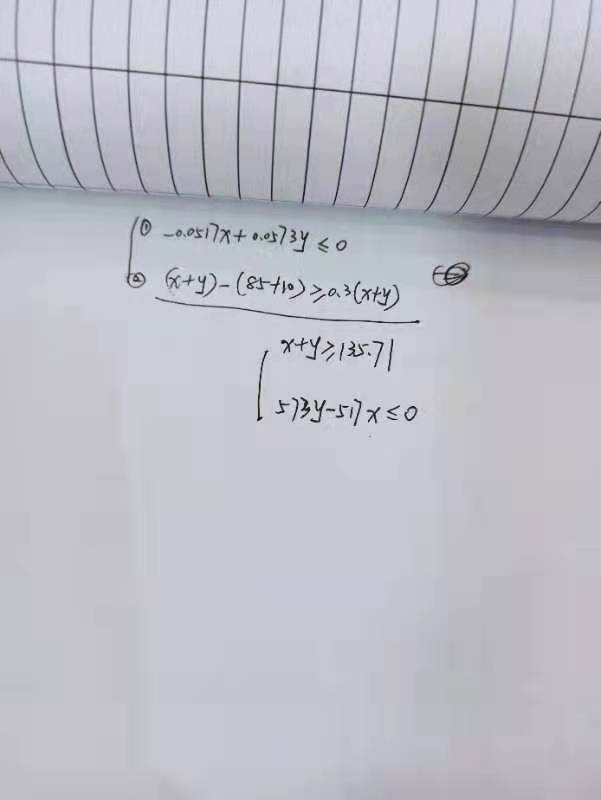 ① -0.0517x+0.0573y≤0
② (x+y)-(85+10)≥0.3(x+y)
x+y≥135.71
573y-517x≤0